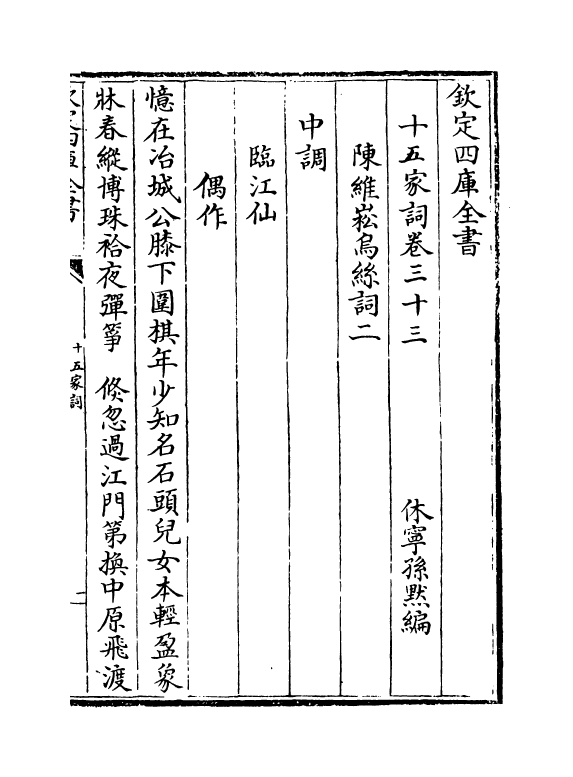 欽定四庫全書
十五家詞卷三十三　休寧孫默編
陳維崧烏絲詞二
中調
臨江仙
偶作
憶在冶城公膝下圍棋年少知名石頭兒女本輕盈象
牀春縱博珠袷夜彈箏　倐忽過江門第換中原飛渡
欽定四庫全書
十五家詞
二